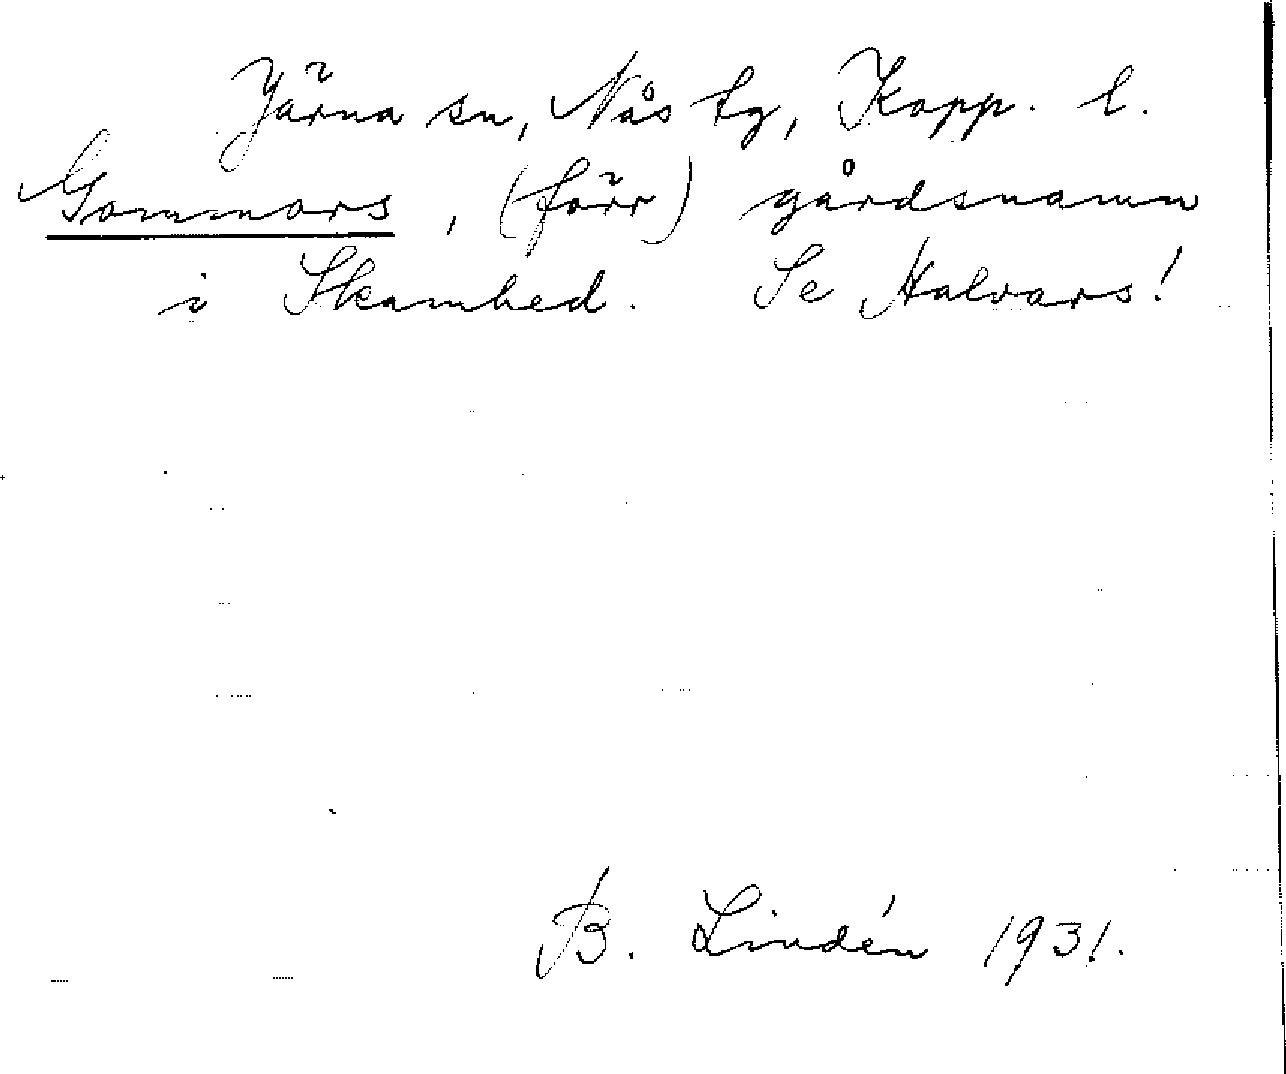 Järna sn, Nås tg, Kopp. l.
Gommars, (förr) gårdsnamn
i Skamhed. Se Halvars!
B. Lindén 1931.